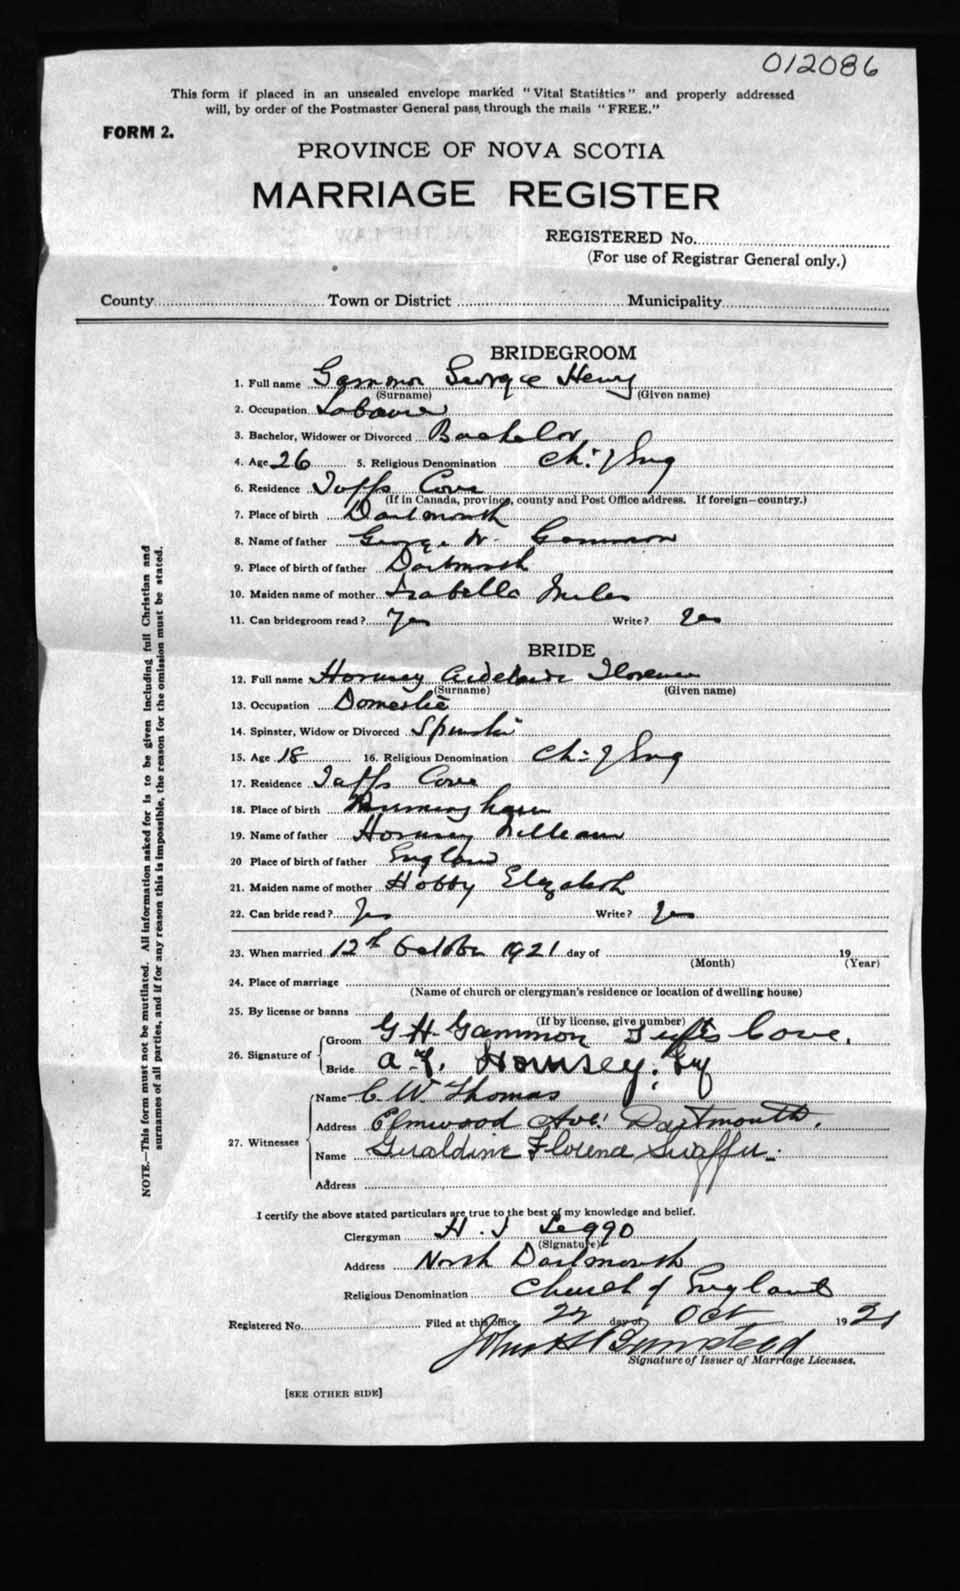 012086
This form if placed in an unsealed envelope marked "Vital Statistics" and properly addressed
will, by order of the Postmaster General pass, through the mails "FREE."
FORM 2.
PROVINCE OF NOVA SCOTIA
MARRIAGE REGISTER
REGISTERED No.
(For use of Registrar General only.)
County Town or District Municipality
BRIDEGROOM
1. Full name Gammon George Henry
(Surname) (Given name)
2. Occupation Labourer
3. Bachelor, Widower or Divorced Bachelor
4. Age 26 5. Religious Denomination Ch: of Eng
6. Residence Tuffs Cove
(If in Canada, province, county and Post Office address. If foreign—country.)
7. Place of birth Dartmouth
8. Name of father George W. Gammon
9. Place of birth of father Dartmouth
10. Maiden name of mother Isabella Miles
11. Can bridegroom read? Yes Write? Yes
BRIDE
12. Full name Hornsey Adelaide Florence
(Surname) (Given name)
13. Occupation Domestic
14. Spinster, Widow or Divorced Spinster
15. Age 18 16. Religious Denomination Ch: of Eng
17. Residence Tuffs Cove
18. Place of birth Birmingham
19. Name of father Hornsey William
20 Place of birth of father England
21. Maiden name of mother Hobby Elizabeth
22. Can bride read? Yes Write? Yes
23. When married 12th October 1921 day of 19
(Month) (Year)
24. Place of marriage
(Name of church or clergyman's residence or location of dwelling house)
25. By license or banns
(If by license, give number)
26. Signature of
Groom G H Gammon Tufts Cove.
Bride A. F. Hornsey.
27. Witnesses
Name C. W. Thomas
Address Elmwood Ave. Dartmouth.
Name Geraldine Florence
Address
I certify the above stated particulars are true to the best of my knowledge and belief.
Clergyman H. J Leggo
(Signature)
Address North Dartmouth
Religious Denomination Church of England
Registered No. Filed at this office 22 day of Oct 1921
John H
Signature of Issuer of Marriage Licenses.
[SEE OTHER SIDE]
NOTE.—This form must not be mutilated. All information asked for is to be given including full Christian and
surnames of all parties, and if for any reason this is impossible, the reason for the omission must be stated.